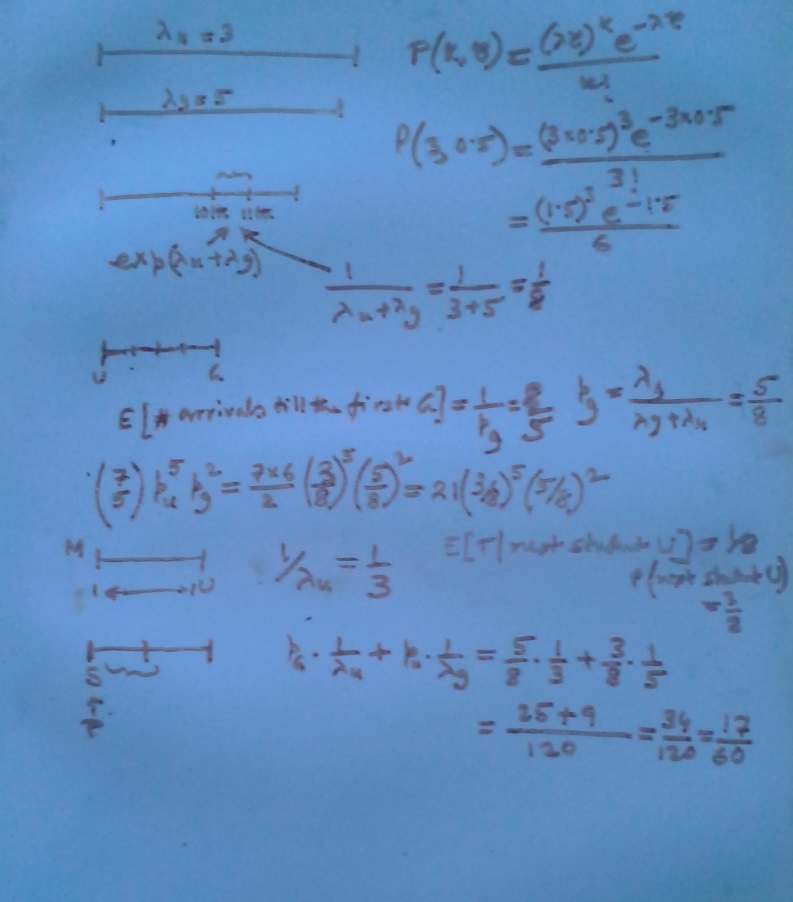 λu = 3
P(k, τ) = (λτ)^k e^-λτ / k!
λg = 5
P(3, 0.5) = (3×0.5)^3 e^-3×0.5 / 3!
= (1.5)^3 e^-1.5 / 6
10th 11th
exp(λu+λg)
1/(λu+λg) = 1/(3+5) = 1/8
U G
E[# arrivals till the first G] = 1/pg = 8/5 pg = λg/(λg+λu) = 5/8
(7 5) pu^5 pg^2 = 7×6/2 (3/8)^5 (5/8)^2 = 21(3/8)^5 (5/8)^2
M 1/λu = 1/3 E[T|next student U] = 1/8
U P(next student U)
= 3/8
S
pG · 1/λu + pu · 1/λg = 5/8 · 1/3 + 3/8 · 1/5
↑
P
= 25+9/120 = 34/120 = 17/60